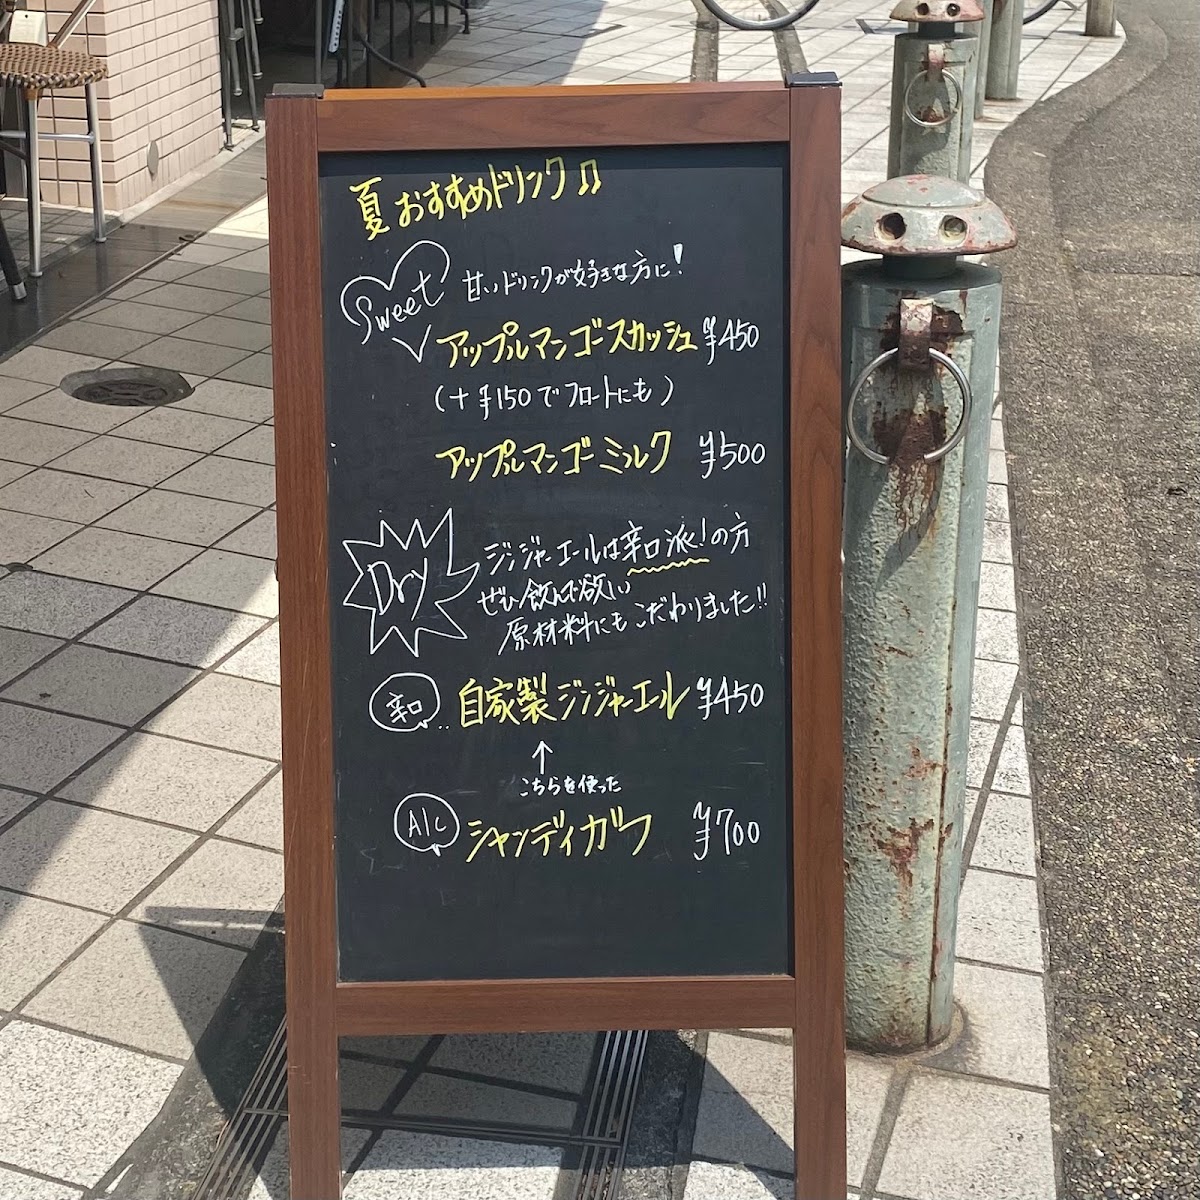 夏おすすめドリンク♫
Sweet 甘いドリンクが好きな方に!
アップルマンゴースカッシュ ¥450
(+¥150でフロートにも)
アップルマンゴーミルク ¥500
Dry ジンジャーエールは辛口派!の方
ぜひ飲んで欲しい
原材料にもこだわりました!!
辛口 自家製ジンジャーエール ¥450
↑
こちらを使った
Alc シャンディガフ ¥700